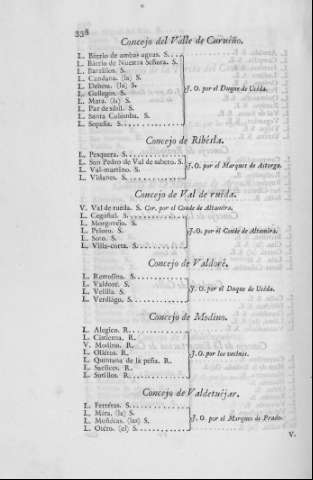 338
Concejo del Valle de Curueño.
L. Bárrio de ambas aguas. S.
L. Bárrio de Nuestra Señora. S.
L. Barrillos. S.
L. Candana. (la) S.
L. Debesa. (la) S.
L. Gallegos. S.
L. Mata. (la) S.
L. S.
L. Santa Colomba. S.
L. Sopeña. S.
J. O. por el Duque de Uzéda.
Concejo de Ribésla.
L. Pesquera. S.
L. San Pedro de Val de sabero. S.
L. Val-martino. S.
L. Vidanes. S.
J. O. por el Marques de Astorga.
Concejo de Val de ruéda.
V. Val de rueda. S. Cor. por el Conde de Altamíra.
L. Cegoñal. S.
L. Morgovejo. S.
L. S.
L. Soto. S.
L. Villa-corta. S.
J. O. por el Conde de Altamíra.
Concejo de Valdoré.
L. Remolína. S.
L. Valdoré. S.
L. Velilla. S.
L. Verdiágo. S.
J. O. por el Duque de Uzéda.
Concejo de Modino.
L. Alegico. R.
L. Cistierna. R.
V. Modino. R.
L. Olléros. R.
L. Quintana de la peña. R.
L. Santíbos. R.
L. Sotillos. R.
J. O. por los vecinos.
Concejo de Valdetuéjar.
L. Ferréras. S.
L. Mata. (la) S.
L. Muñécas. (las) S.
L. Otéro. (el) S.
J. O. por el Marques de Prado.
V.